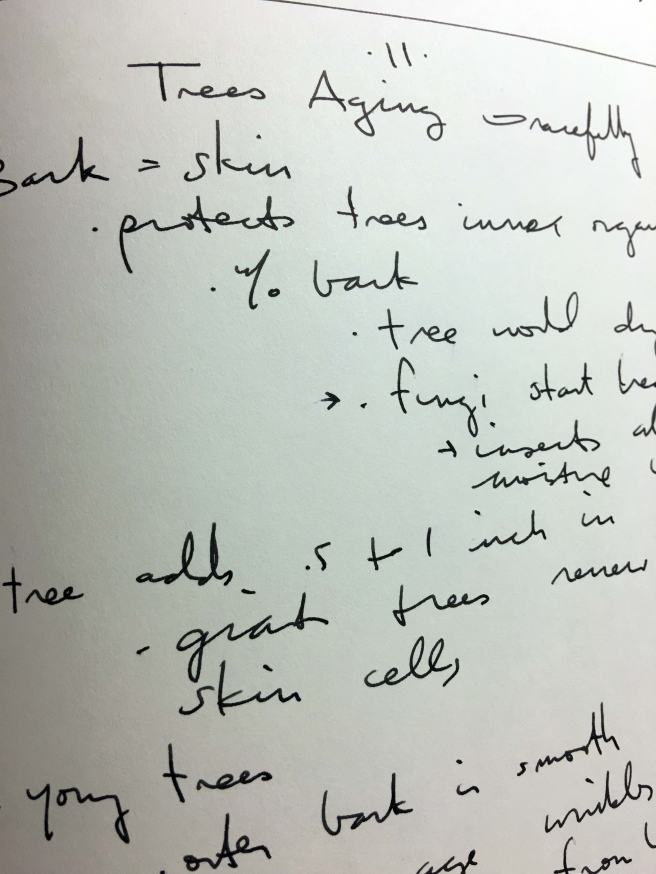 ·11·
Trees Aging Gracefully
Bark = skin
· protects trees inner
· w/o bark
· tree would
→ · fungi start
→ insects
moisture
tree adds .5 to 1 inch in
- giant trees renew
skin cells
· young trees
· outer bark is smooth
age wrinkles
from